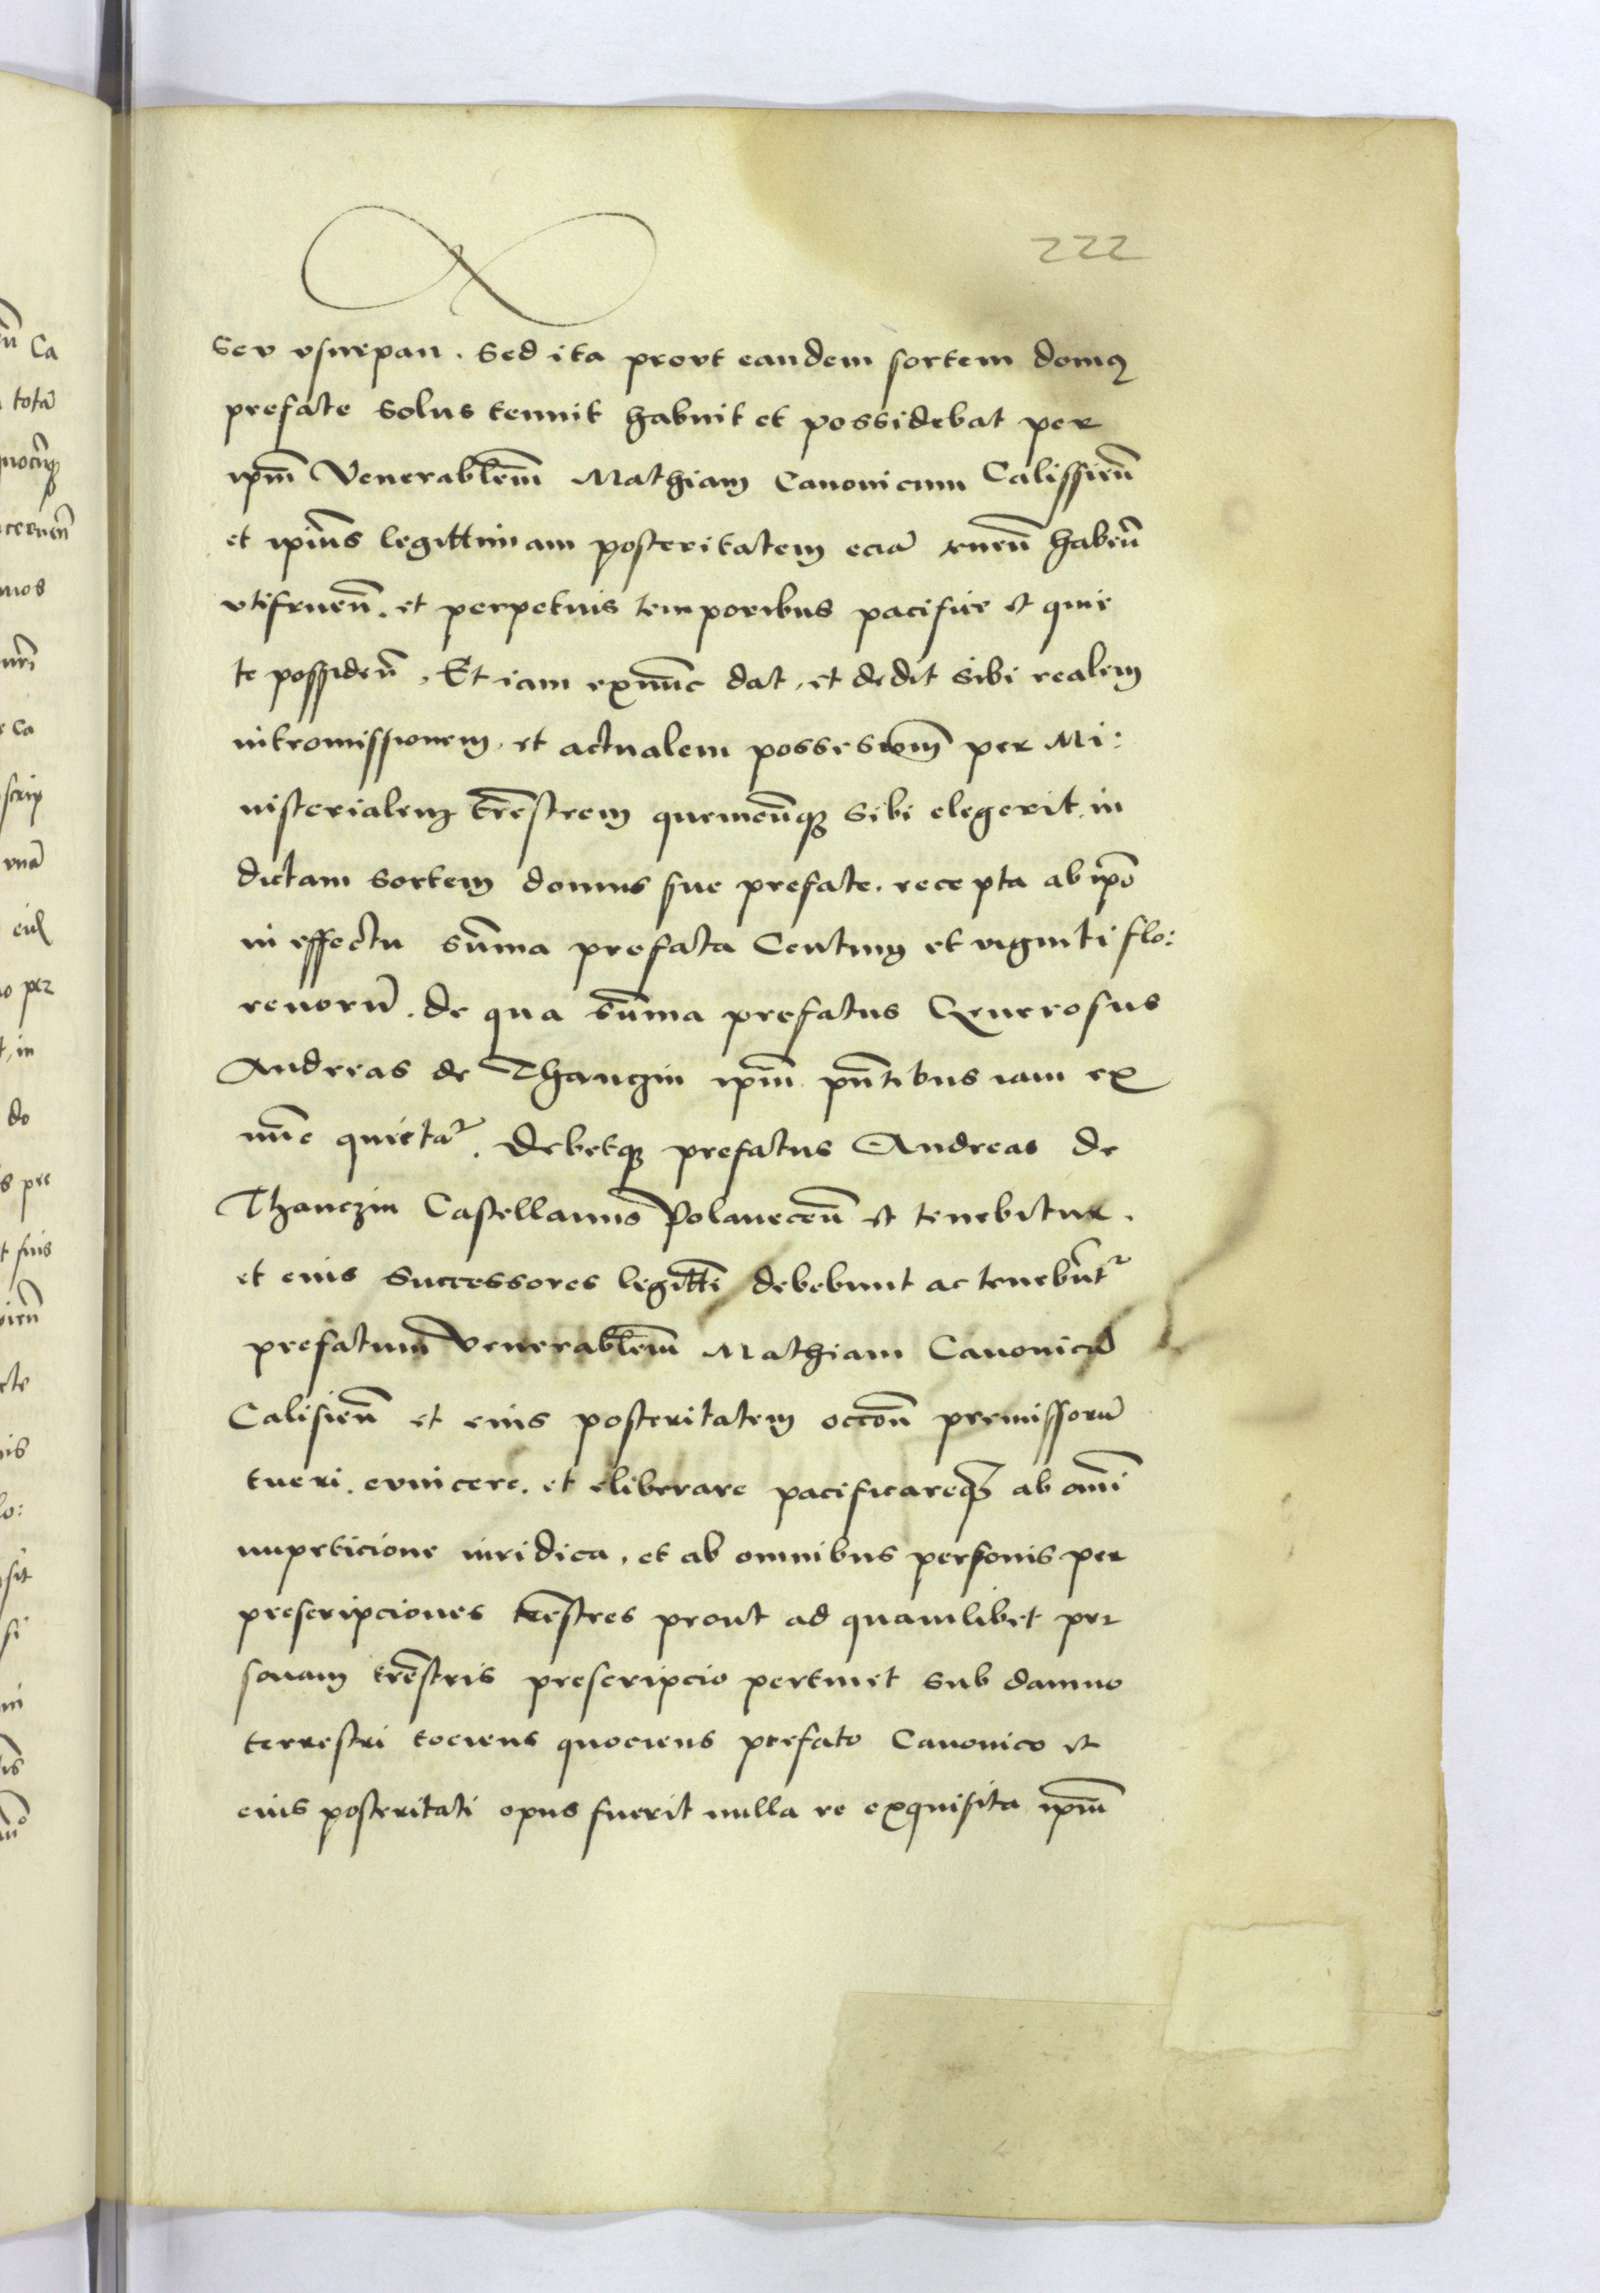 222
Seu vsurpan. Sed ita prout eandem sortem domus
prefate Solus tenuit habuit et possidebat per
ipm̄ Venerablem̄ Mathiam Canonicum Calissien̄
et ipius̄ legittimam posteritatem eciā tenen̄ haben̄
vtifruen̄. et perpetuis temporibus pacifice et quie
te possiden̄. Et iam exnunc dat. et dedit Sibi realem
intromissionem. et actualem possessionem̄ per Mi:
nisterialem tr̄estrem quemcunq̄ꝫ Sibi elegerit. in
dictam Sortem domus sue prefate. recepta ab ip̄o
in effectu Sum̄a prefata Centum et viginti flo:
renorū. de qua sum̄a prefatus Generosus
Andreas de Thanczin ipm̄ pn̄tibus iam ex
nunc quietat̉. Debetqꝫ prefatus Andreas de
Thanczin Castellanus Polanecen̄ et tenebitur.
et eius Successores legittī debebunt ac tenebūt̉
prefatum Venerablem̄ Mathiam Canonicū
Calisien̄ et eius posteritatem occōn̄ premissorū
tueri. euincere. et eliberare pacificareqꝫ ab om̄i
impeticione iuridica. et ab omnibus personis per
prescripciones tr̄estres prout ad quamlibet per
sonam tr̄estris prescripcio pertinet Sub damno
terrestri tociens quociens prefato Canonico et
eius posteritati opus fuerit nulla re exquisita ipm̄